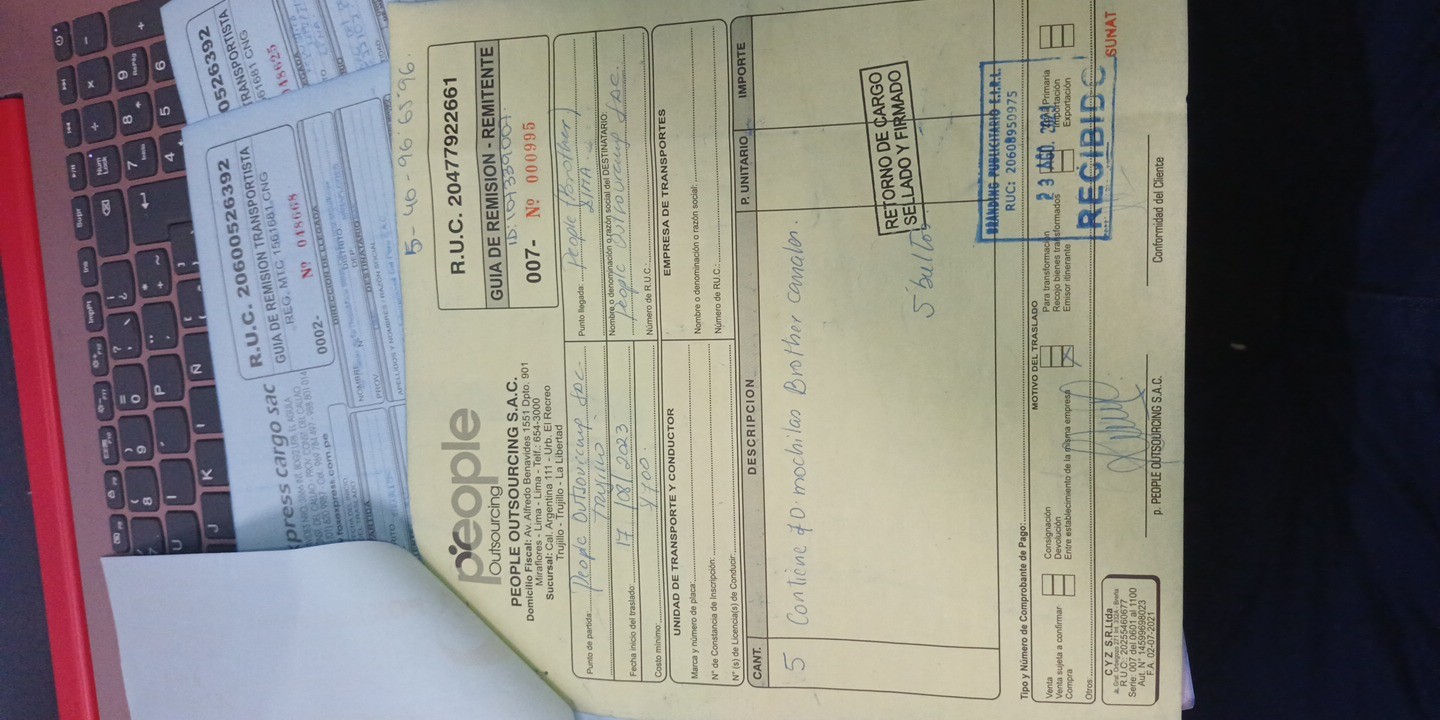 5-40-96-65-96.
people
Outsourcing
PEOPLE OUTSOURCING S.A.C.
Domicilio Fiscal: Av. Alfredo Benavides 1551 Dpto. 901
Miraflores - Lima - Lima - Telf.: 654-3000
Sucursal: Cal. Argentina 111 - Urb. El Recreo
Trujillo - Trujillo - La Libertad
R.U.C. 20477922661
GUIA DE REMISION - REMITENTE
007- Nº 000995
Punto de partida: People Outsourcing SAC-
Trujillo
Fecha inicio del traslado: 17/08/2023
Costo mínimo:
Punto llegada: People (Brother)
LIMA.
Nombre o denominación o razón social del DESTINATARIO:
People Outsourcing SAC.
Número de R.U.C.:
UNIDAD DE TRANSPORTE Y CONDUCTOR
Marca y número de placa:
N° de Constancia de Inscripción:
N° (s) de Licencia(s) de Conducir:
EMPRESA DE TRANSPORTES
Nombre o denominación o razón social:
Número de RU.C.:
CANT. DESCRIPCION P. UNITARIO IMPORTE
5 Contiene 70 mochilas Brother canales.
RETORNO DE CARGO
SELLADO Y FIRMADO
5 bultos
BRANDING PUBLICITARIO E.I.R.L.
RUC: 20608950975
23 AGO. 2023
RECIBIDO
Tipo y Número de Comprobante de Pago:
MOTIVO DEL TRASLADO
Venta
Venta sujeta a confirmar
Compra
Otros
Consignación
Devolución
Entre establecimiento de la misma empresa
Para transformación
Recojo bienes transformados
Emisor itinerante
Primaria
Importación
Exportación
SUNAT
C Y Z S.R.Ltda
R.U.C: 20255460677
Serie: 007 del 0601 al 1100
Aut. N° 14599698023
F.A. 02-07-2021
p. PEOPLE OUTSOURCING S.A.C.
Conformidad del Cliente
press cargo sac
R.U.C. 20600526392
GUIA DE REMISION TRANSPORTISTA
REG. MTC 1561681 CNG
0002- Nº 048668
DIRECCION DE LLEGADA
DESTINATARIO
0526392
TRANSPORTISTA
61681 CNG
048625